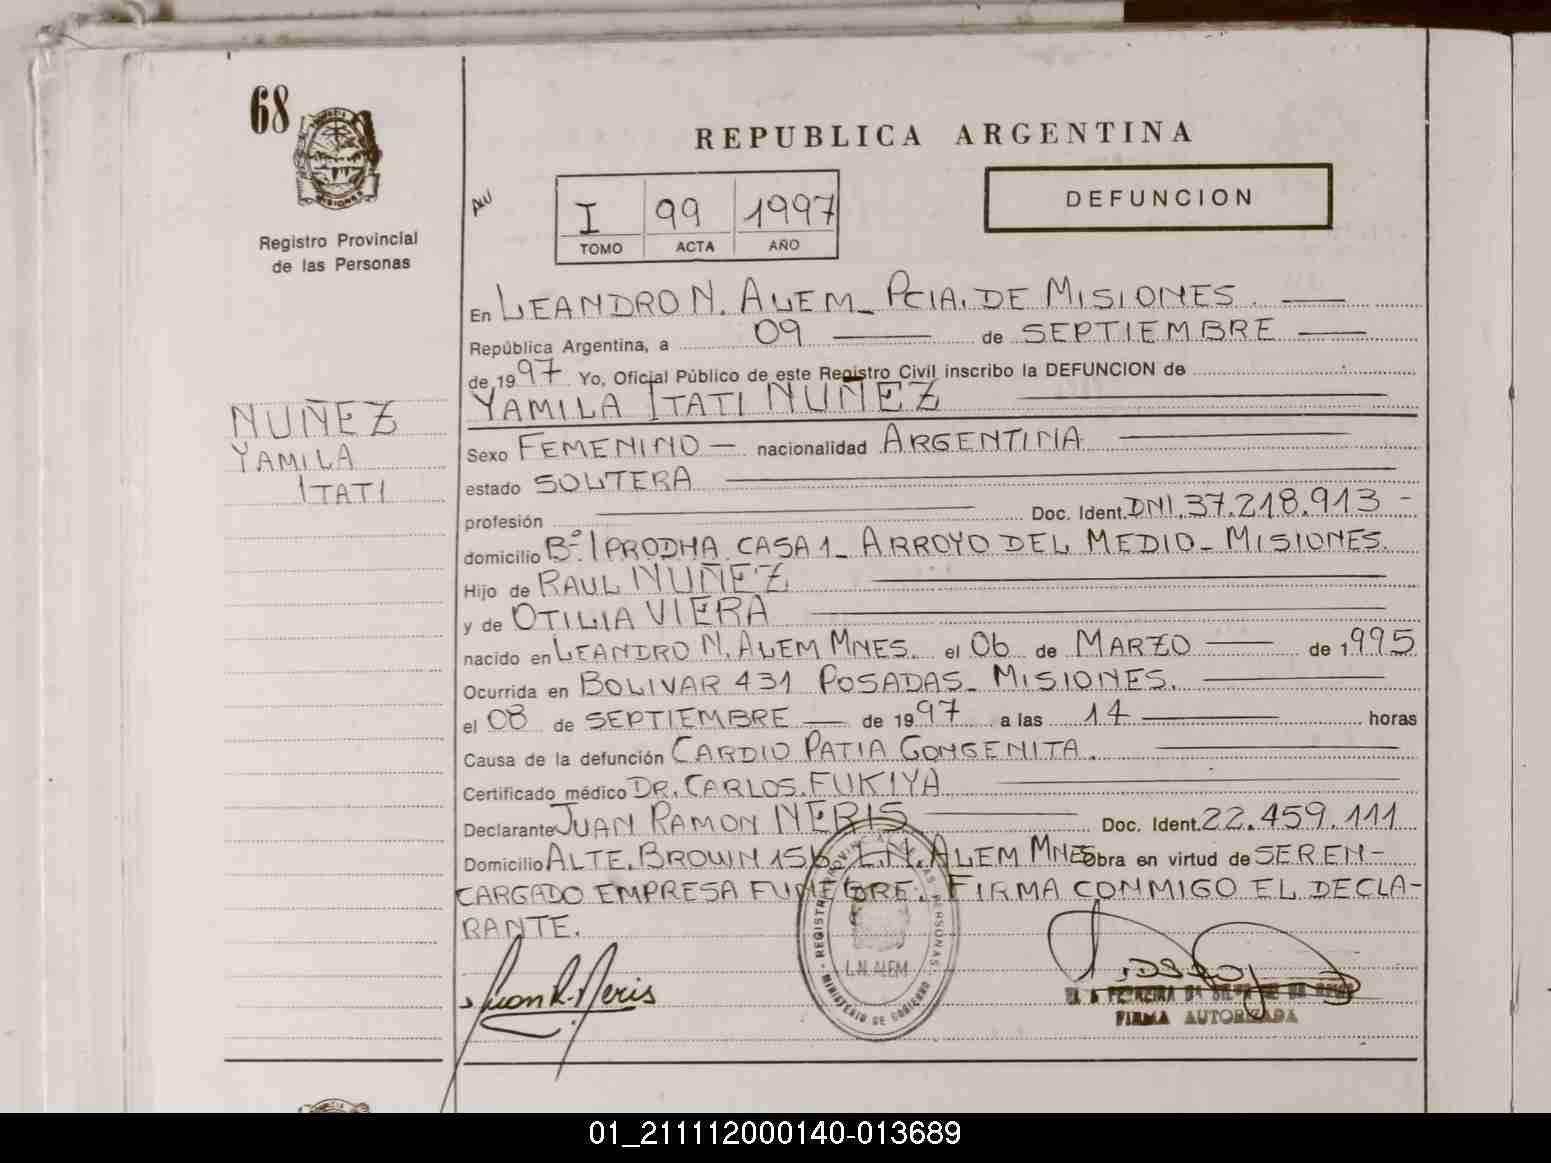 68
REPUBLICA ARGENTINA
DEFUNCION
I 99 1997
TOMO ACTA AÑO
Registro Provincial
de las Personas
En LEANDRO N. ALEM_ PCIA. DE MISIONES.
República Argentina, a 09 de SEPTIEMBRE
de 1997 Yo, Oficial Público de este Registro Civil inscribo la DEFUNCION de
YAMILA ITATI NUÑEZ
NUÑEZ
YAMILA
ITATI
Sexo FEMENINO — nacionalidad ARGENTINA
estado SOLTERA
profesión Doc. Ident. DNI. 37.218.913 -
domicilio Bº. IPRODHA CASA 1_ ARROYO DEL MEDIO_ MISIONES.
Hijo de RAUL NUÑEZ
y de OTILIA VIERA
nacido en LEANDRO N. ALEM MNES. el 06 de MARZO de 1995
Ocurrida en BOLIVAR 431 POSADAS_ MISIONES.
el 08 de SEPTIEMBRE — de 1997 a las 14 horas
Causa de la defunción CARDIO PATIA CONGENITA.
Certificado médico DR. CARLOS. FUKIYA
Declarante JUAN RAMON NERIS Doc. Ident. 22.459.111
Domicilio ALTE. BROWN 156 L.N. ALEM MNES Obra en virtud de SER EN-
CARGADO EMPRESA FUNEBRE. FIRMA CONMIGO EL DECLA-
RANTE.
Juan R. Neris
L.N. ALEM
MINISTERIO DE GOBIERNO
FIRMA AUTORIZADA
01_211112000140-013689